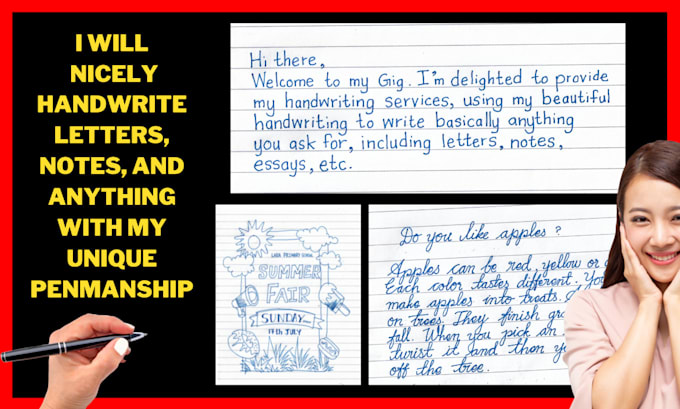 I WILL
NICELY
HANDWRITE
LETTERS,
NOTES, AND
ANYTHING
WITH MY
UNIQUE
PENMANSHIP
Hi there,
Welcome to my Gig. I'm delighted to provide
my handwriting services, using my beautiful
handwriting to write basically anything
you ask for, including letters, notes,
essays, etc.
LARK PRIMARY SCHOOL
SUMMER
FAIR
SUNDAY
17TH JULY
Do you like apples?
Apples can be red, yellow or
Each color tastes different. You
make apples into treats.
on trees. They finish
fall. When you pick an
twist it and then
off the tree.